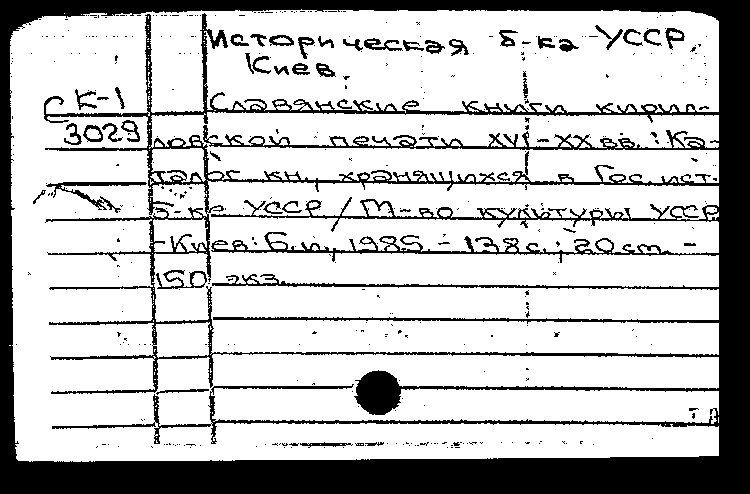 Историческая б-ка УССР.
Киев.
К-1
3029
Славянские книги кирил-
ловской печати XVI-XX вв. : Ка-
талог кн., хранящихся в Гос. ист.
б-ке УССР / М-во культуры УССР
-Киев: Б.и., 1985. - 138 с.; 20 cm. -
150 экз.